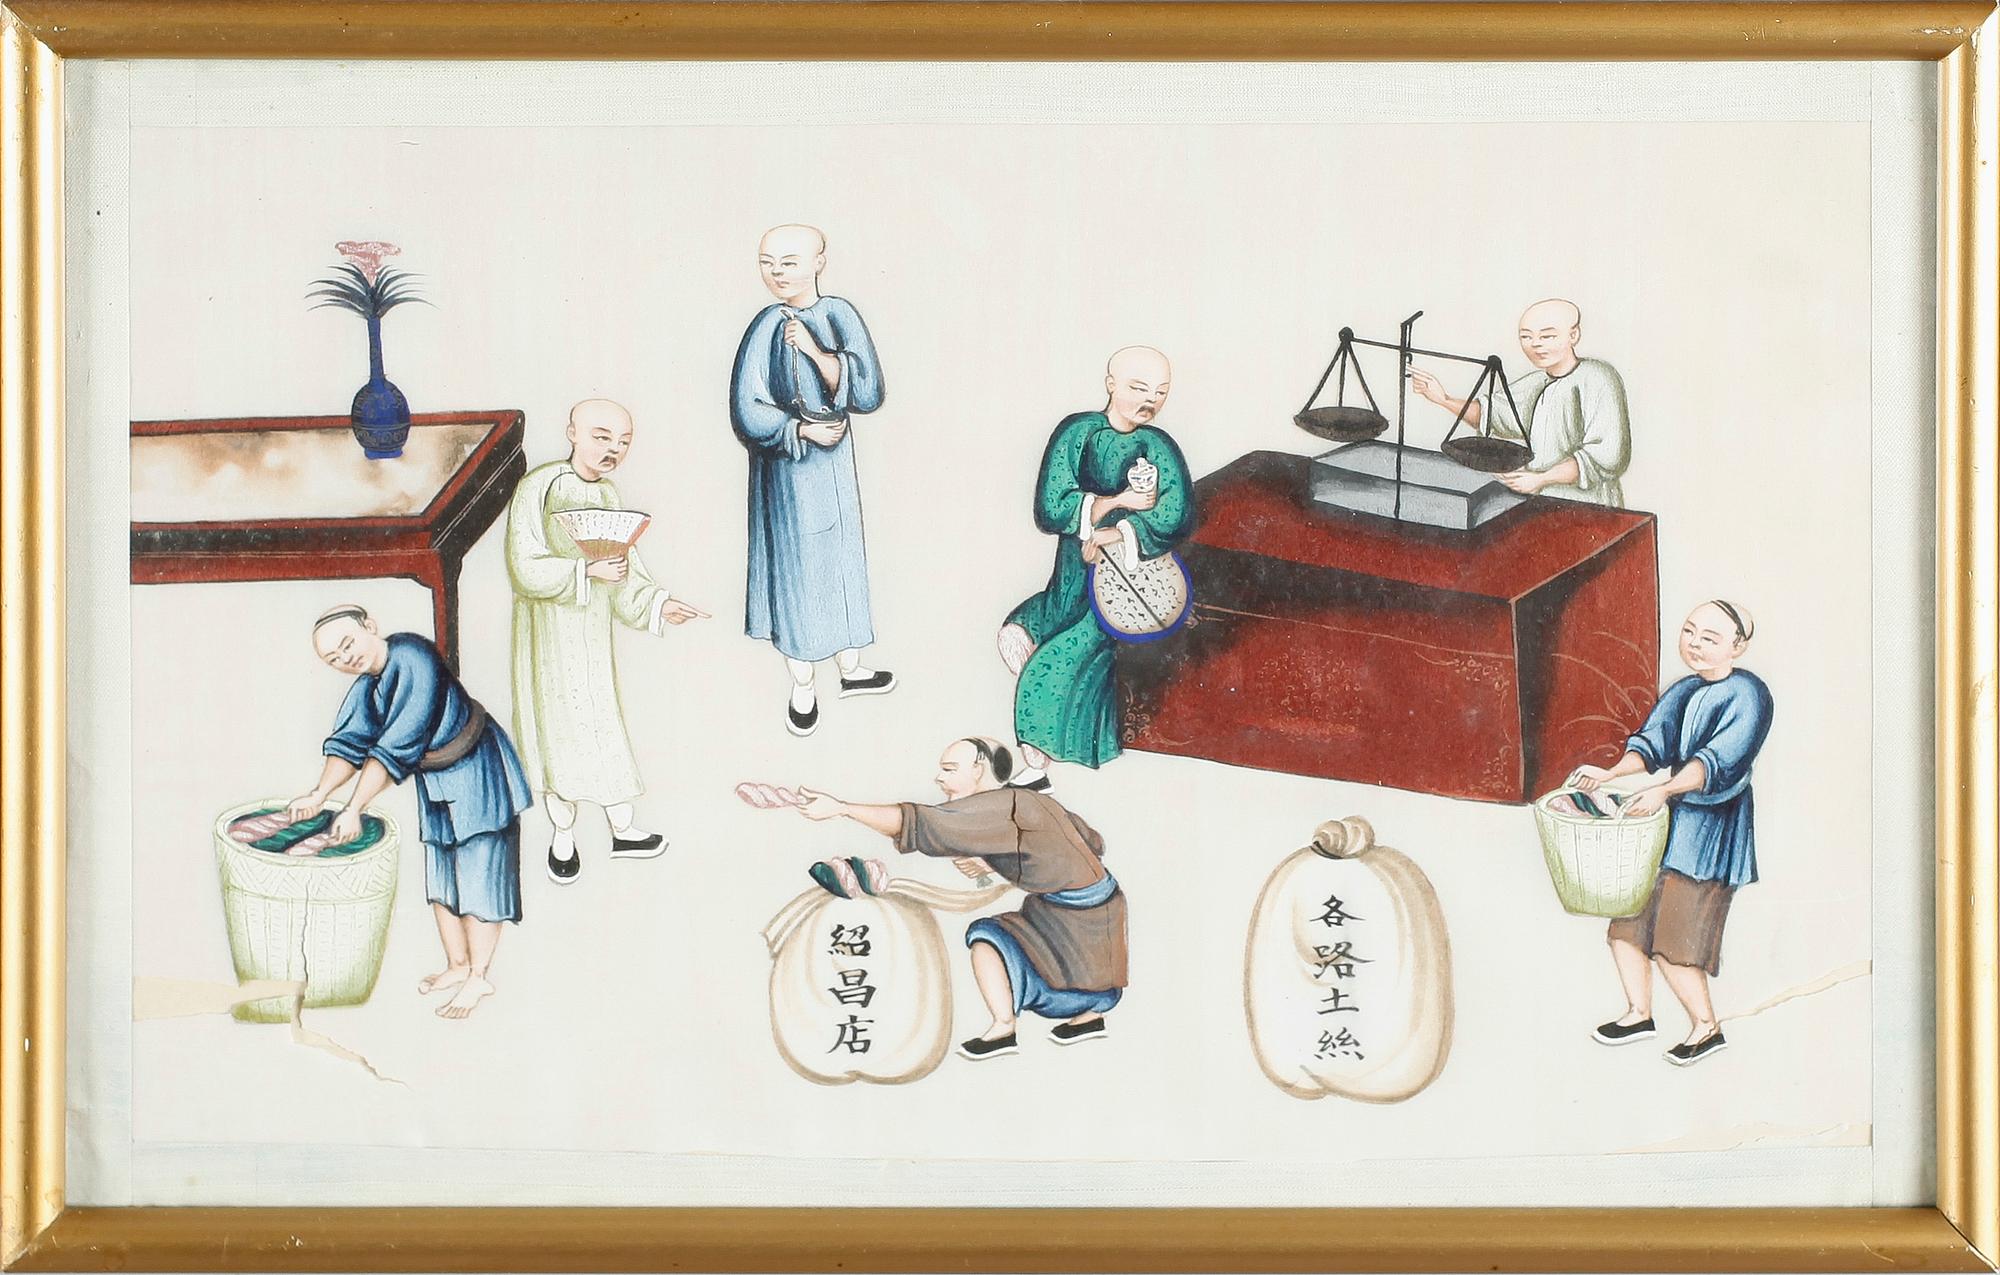 紹昌店
各路土絲